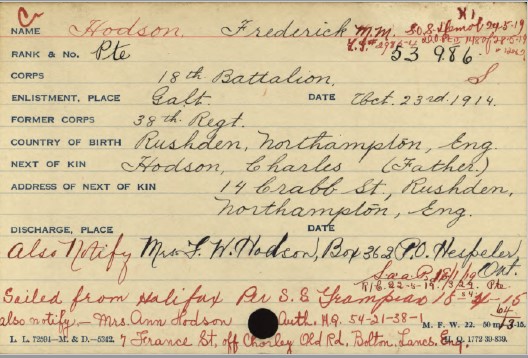 C
NAME Hodson, Frederick M.M.
RANK & No. Pte 53986
CORPS 18th Battalion, S
ENLISTMENT, PLACE Galt. DATE Oct. 23rd. 1914.
FORMER CORPS 38th Regt.
COUNTRY OF BIRTH Rushden, Northampton, Eng.
NEXT OF KIN Hodson, Charles (Father.)
ADDRESS OF NEXT OF KIN 14 Crabb St., Rushden,
Northampton, Eng.
DISCHARGE, PLACE DATE
Also Notify Mrs F. W. Hodson, Box 362 P.O. Hespeler,
Ont.
Sailed from Halifax Per S.S. Grampian 18-4-15
M. F. W. 22.
also notify.- Mrs. Ann Hodson Auth. HQ. 54-21-38-1
L. L. 72591-M. & D.-5342. 7 France St, off Chorley Old Rd, Bolton, Lancs. Eng. H.Q. 1772 39-839.